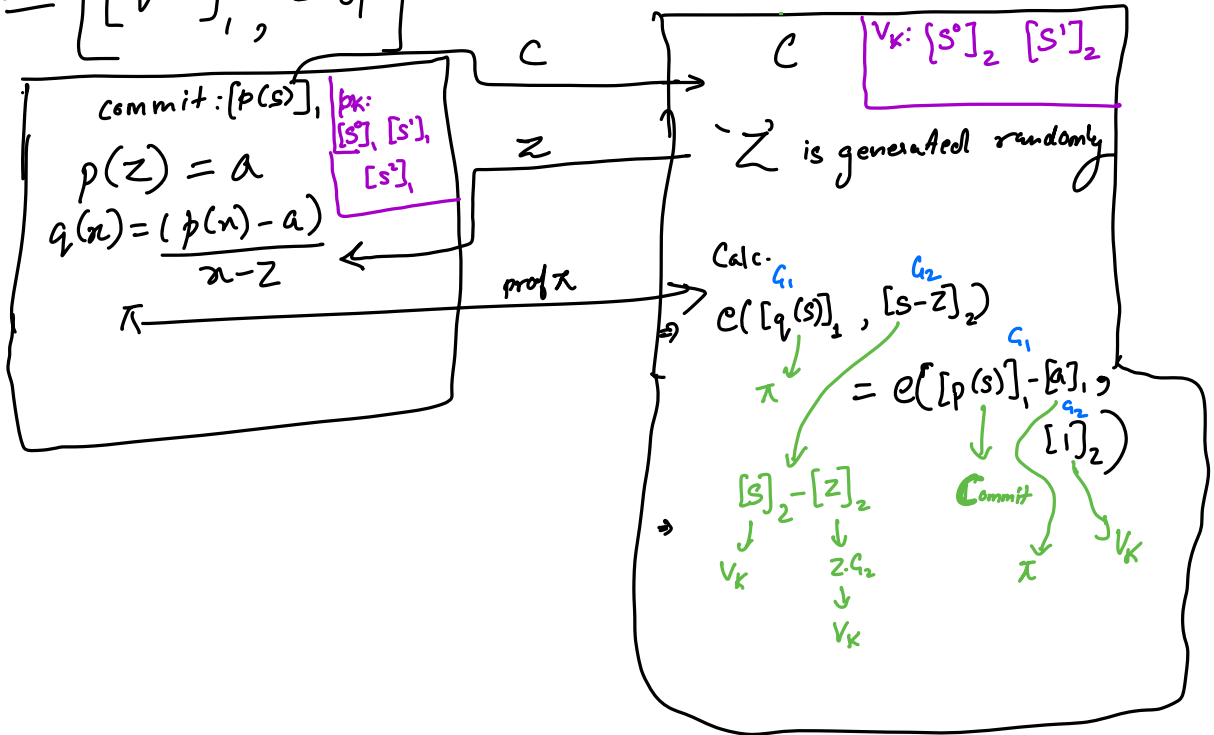 [ [ ]₁ ,
C
commit : [p(s)]₁
pk:
[S⁰]₁ [S¹]₁
[s²]₁
p(Z) = a
q(x) = (p(x) - a)
x - Z
π
Z
prof π
C
Vk: [S⁰]₂ [S¹]₂
'Z' is generated randomly
Calc.
G₁ G₂
⇒ e([q(s)]₁ , [s-Z]₂)
π
G₁
= e([p(s)]₁ - [a]₁ ,
G₂
[1]₂)
[S]₂ - [Z]₂
Commit
⇒
Vk Z.G₂ π Vk
Vk